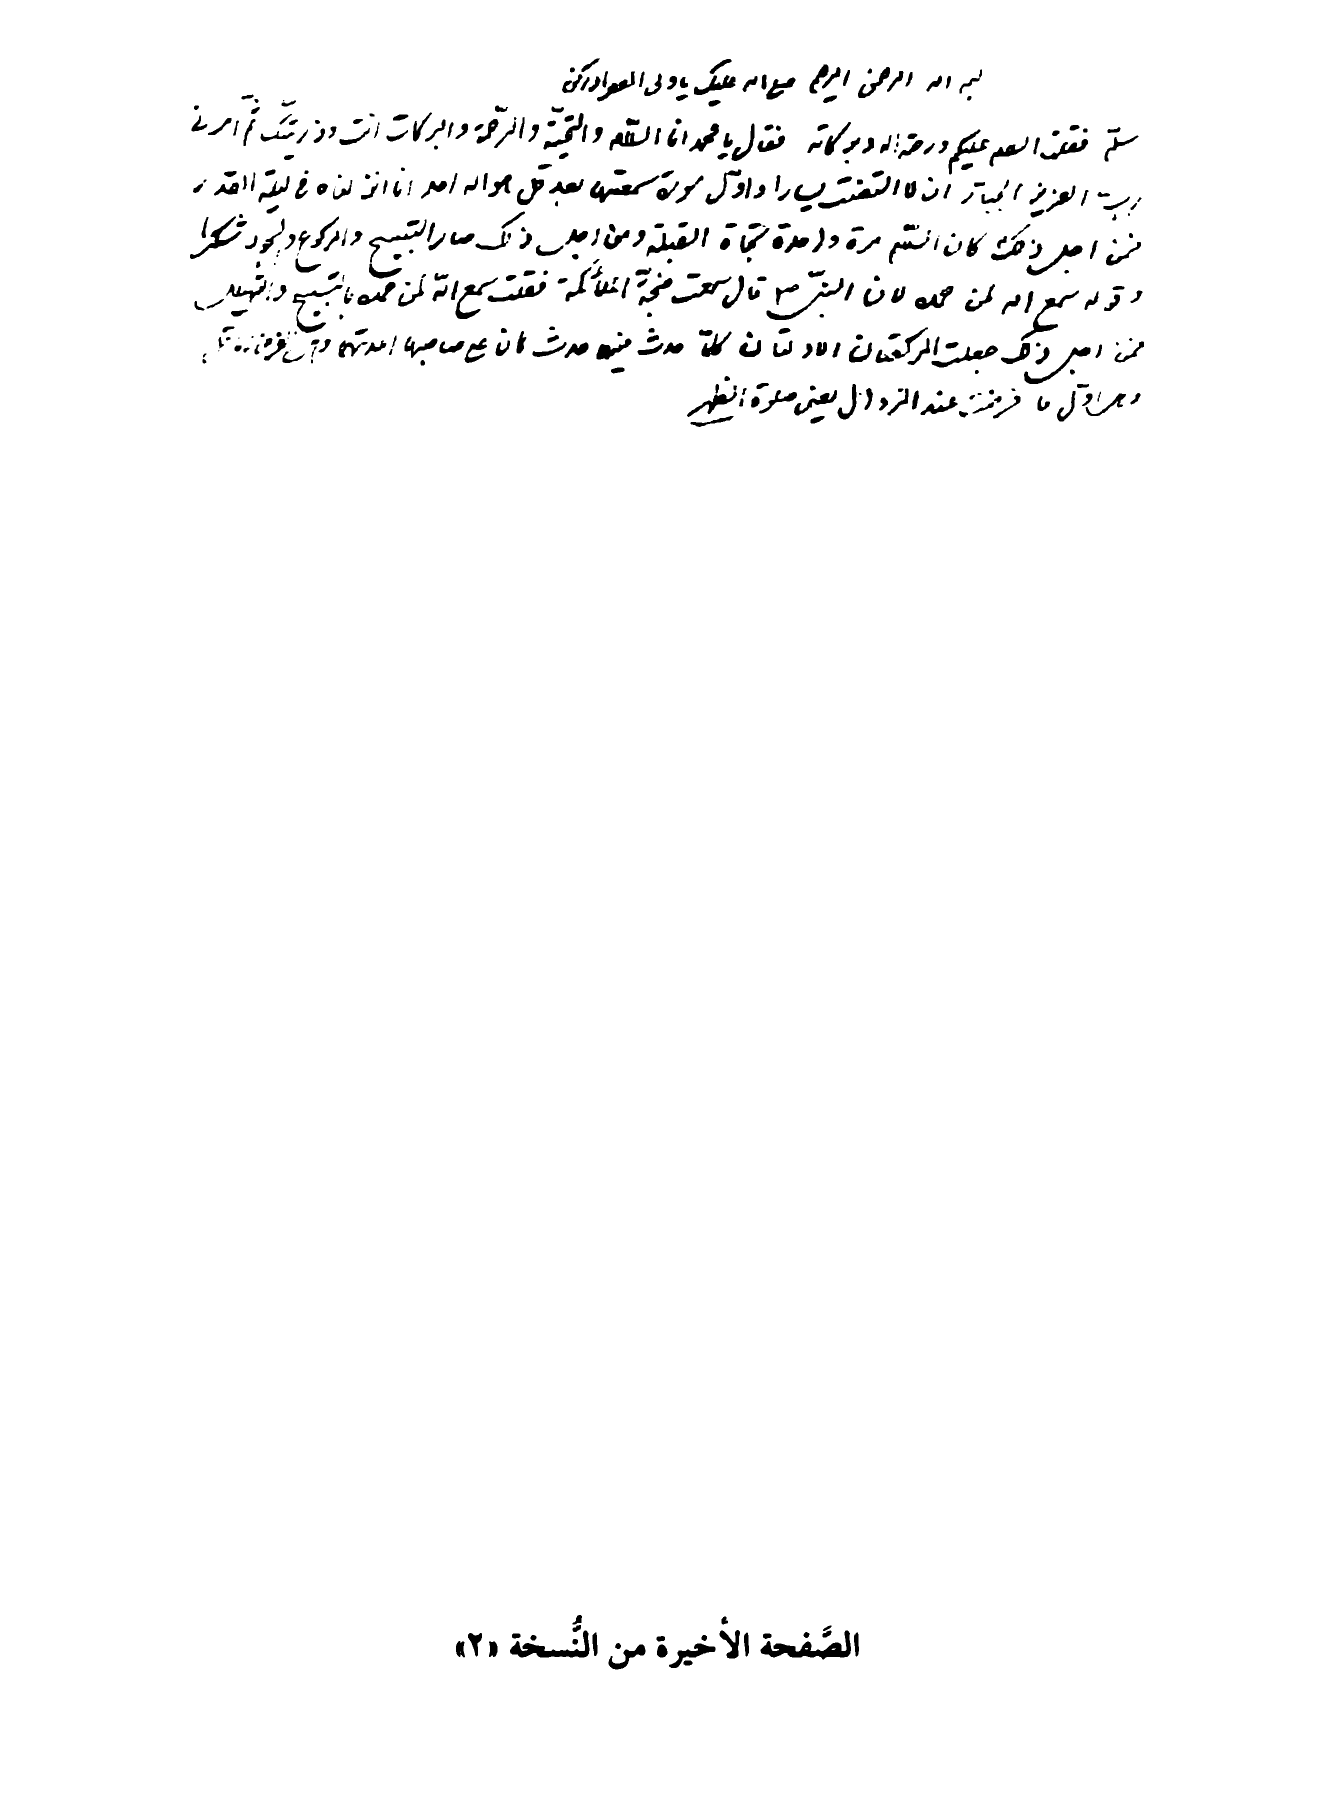 بسم الله الرحمن الرحيم صلى الله عليك يا ولي العصر ادركني
سلّم فقلت السلام عليكم ورحمة الله وبركاته فقال يا محمد انا السّلام والتحيّة والرّحمة والبركات انت وذريّتك ثمّ امرني
ربّي العزيز الجبّار ان لا التفت يسارا واوّل سورة سمعتها بعد قل هو الله احد انا انزلناه في ليلة القدر
فمن اجل ذلك كان السّلام مرة واحدة تجاة القبلة ومن اجل ذلك صار التسبيح والركوع والسجود شكرا
وقوله سمع الله لمن حمده لان النبيّ ص قال سمعت ضجّة الملائكة فقلت سمع الله لمن حمده بالتسبيح والتهليل
فمن اجل ذلك جعلت الركعتان الاولتان كلّما حدث فيها حدث كان على صاحبها اعادتهما
وهي اوّل ما فرضت عند الزوال يعني صلوة الظهر
الصَّفحة الأخيرة من النُّسخة «٢»